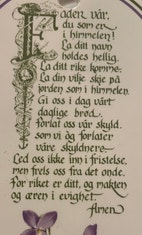 Fader vår,
du som er
i himmelen!
La ditt navn
holdes hellig.
La ditt rike komme.
La din vilje skje på
jorden som i himmelen.
Gi oss i dag vårt
daglige brød.
Forlat oss vår skyld,
som vi òg forlater
våre skyldnere.
Led oss ikke inn i fristelse,
men frels oss fra det onde.
For riket er ditt, og makten
og æren i evighet.
Amen.